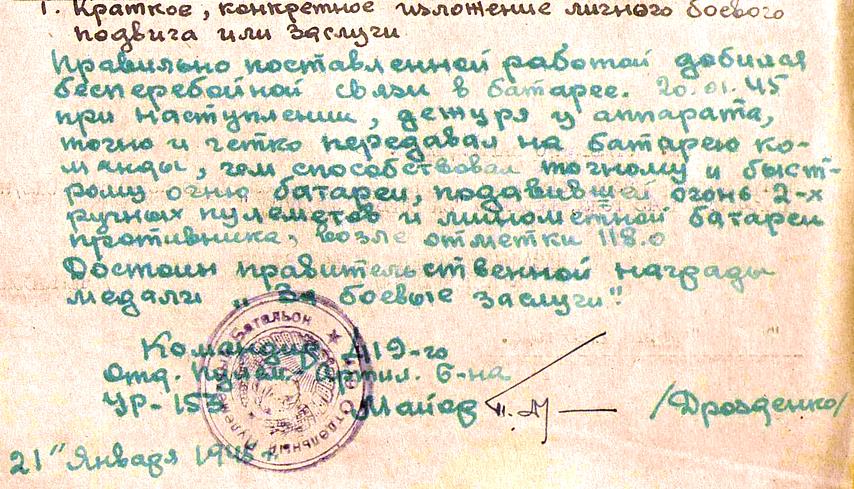 1. Краткое, конкретное изложение личного боевого
подвига или заслуги
Правильно поставленной работой добился
бесперебойной связи в батарее. 20.01.45
при наступлении, дежуря у аппарата,
точно и четко передавал на батарею ко-
манды, чем способствовал точному и быст-
рому огню батареи, подавившей огонь 2-х
ручных пулеметов и минометной батареи
противника, возле отметки 118.0
Достоин правительственной награды
медали „За боевые заслуги".
Командир 419-го
Отд. Пулем. Артил. б-на
УР-153 Майор /Дрозденко/
21" Января 1945 г
Батальон
Отдельный Пулеметный